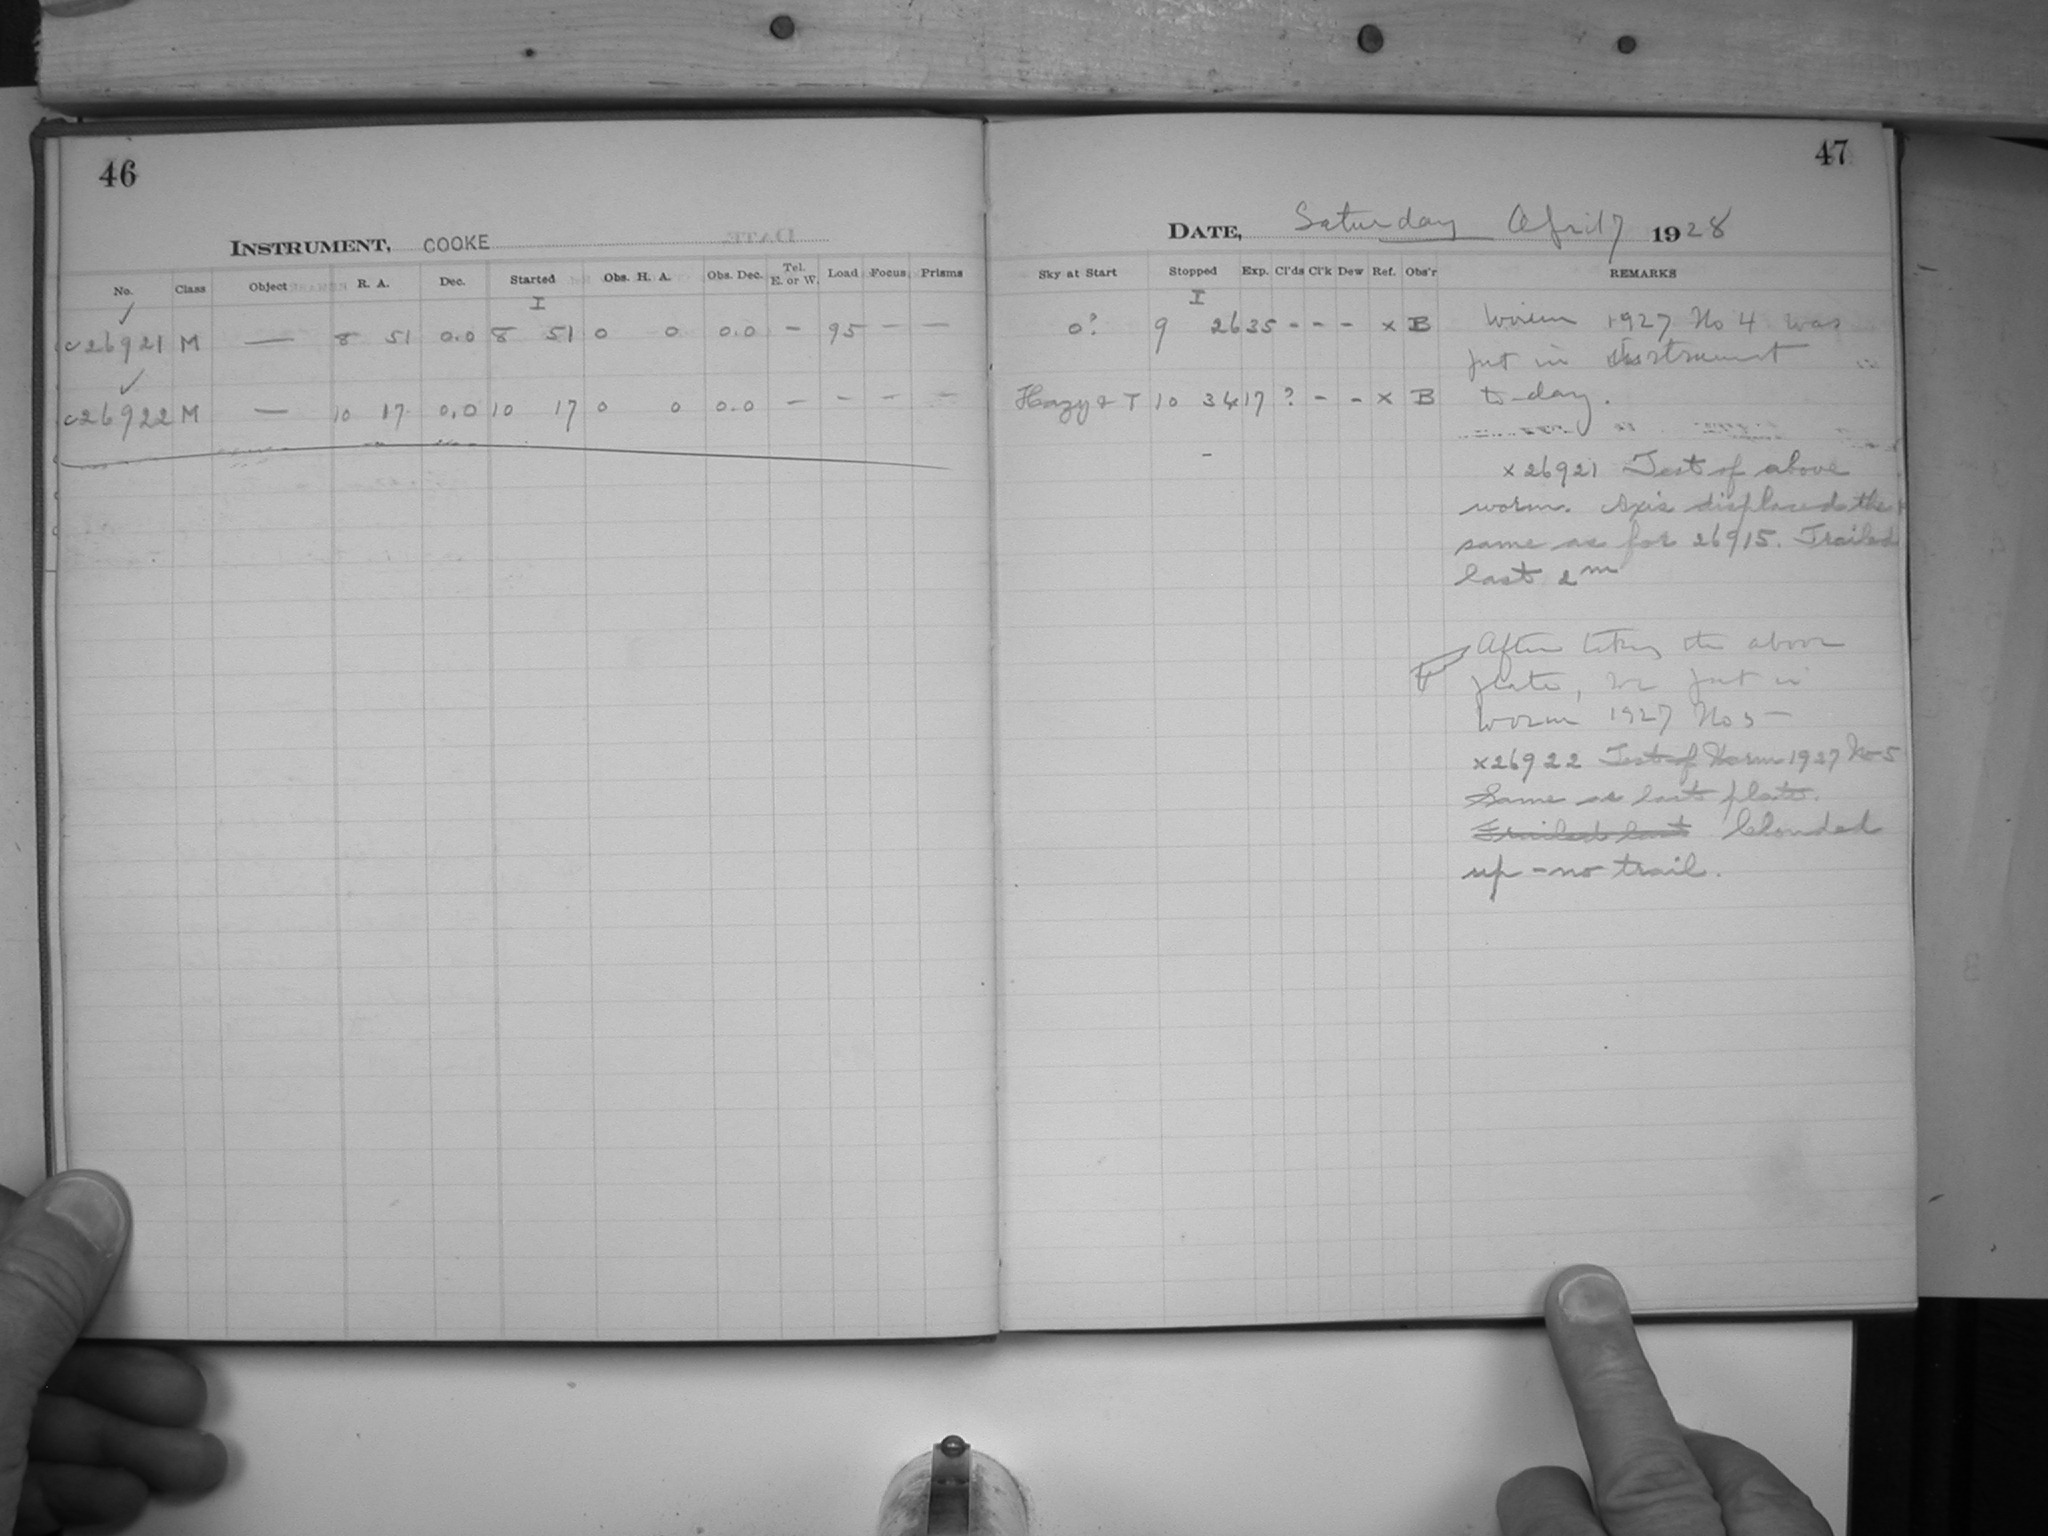 46
INSTRUMENT, COOKE
No. Class Object R. A. Dec. Started Obs. H. A. Obs. Dec. Tel. E. or W. Load Focus Prisms
I
c26921 M — 8 51 0.0 8 51 0 0 0.0 – 95 – —
c26922 M — 10 17 0.0 10 17 0 0 0.0 – – – –
47
DATE, Saturday April 7 1928
Sky at Start Stopped Exp. Cl'ds Cl'k Dew Ref. Obs'r REMARKS
I
0? 9 26 35 - - - x B
Hazy & T 10 34 17 ? - - x B
Worm 1927 No 4 was
put in instrument
to-day.
x 26921 Test of above
worm. Axis displaced the
same as for 26915. Trailed
last 2m
After taking the above
plate, we put in
Worm 1927 No 5—
x26922 Test of Worm 1927 No 5
Same as last plate.
Trailed last Clouded
up - no trail.